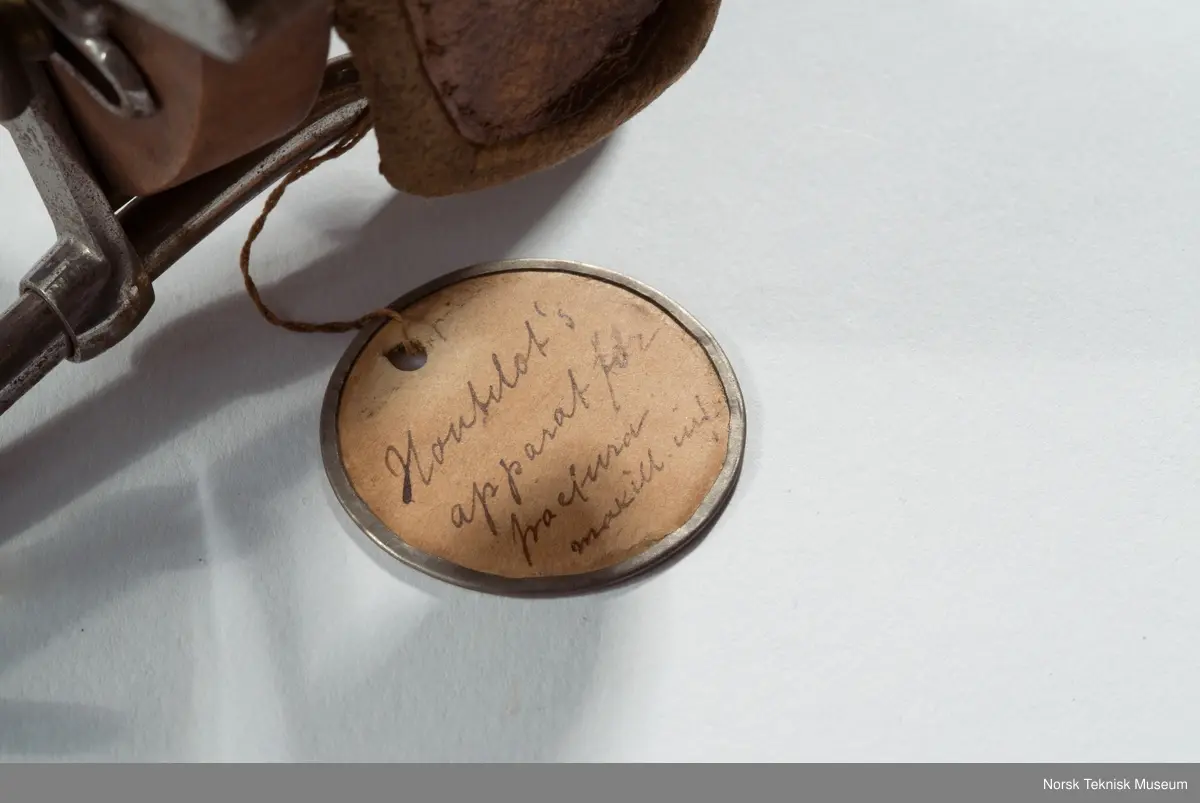 Houtelot's
apparat för
fractura
maxill. inf.
Norsk Teknisk Museum